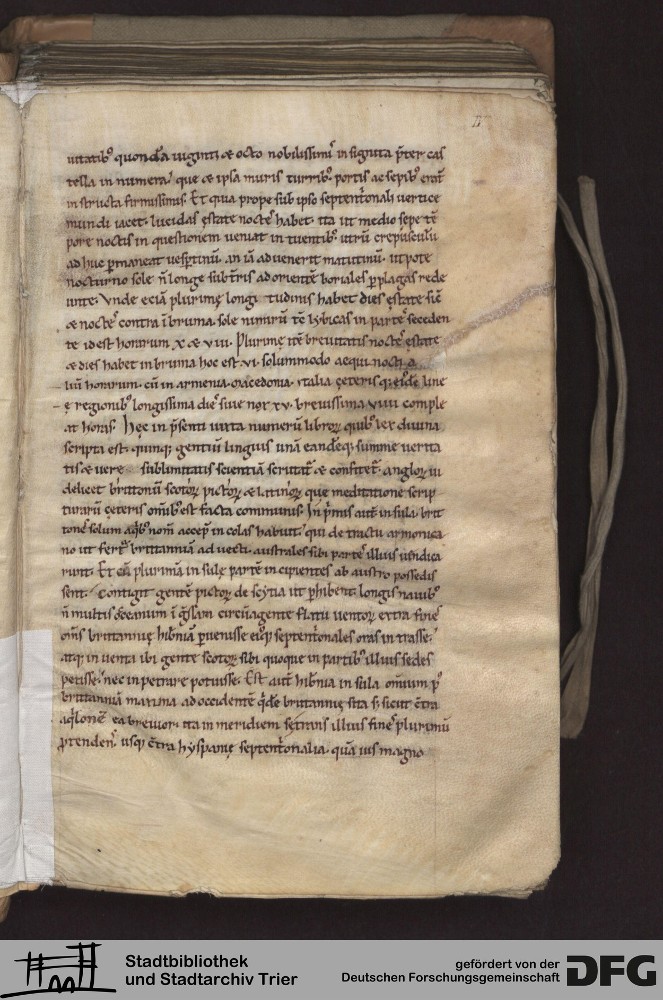 uitatib' quonda uiginti & octo nobilissimis insignita pter cas
tella in numera que & ipsa muris turrib' portis ac sepib' erant
instructa firmissimis. Et qua prope sub ipso septentrionali uertice
mundi iacet. lucidas ęstate noctes habet. ita ut medio sepe tē
pore noctis in questionem ueniat in tuentib' utrū crepusculū
ad huc pmaneat uesptinū. an iā aduenerit matutinū. ut pote
nocturno sole ñ longe sub tris ad orientē boriales p plagas rede
unte. Vnde eciā plurimę longi tudinis habet dies ęstate sic
& noctes contra ī bruma. sole nimirū tē lybicas in partes seceden
te id est horarum x & viii. Plurimę itē breuitatis noctes ęstate
& dies habet in bruma hoc est .vi. solummodo aequi nocti a
liū horarum. cū in armenia. macedonia. italia ceteris q; eiusdē line
ę regionib' longissima dies siue nox xv. breuissima viiii comple
at horas. Hęc in psenti iuxta numerū libror quib' lex diuina
scripta est. quinq; gentiū linguis unā eandēq; summe uerita
tis & uere sublimitatis scientiā scrutat & confitet. anglor ui
delicet brittonū scotor pictor & latinor que meditatione scrip
turarū ceteris omib' est facta communis. In pmis aut in sula brit
tones solum a q'b' nom accep in colas habuit. qui de tractu armonica
no ut fert brittanniā aduecti. australes sibi partes illius uindica
runt. Et cū plurimā in sulę partē in cipientes ab austro possedis
sent. Contigit gentē pictor de scytia ut phibent. longis nauib'
ñ multis oceanum ī gssam circūagente flatu uentor extra fines
oms brittannię hibniā puenisse ei'q; septentrionales oras in trasse.
atq; in uenta ibi gente scotor sibi quoque in partib' illius sedes
petisse. nec in petrare potuisse. Est aut hibnia in sula omium p'
brittanniā maxima ad occidentē q'dē brittannię sita s; sicut ctra
aq'lonē ea breuior. ita in meridiem se trans illius fines plurimū
ptendens. usq; ctra hyspanię septentrionalia. quāuis magno
Stadtbibliothek
und Stadtarchiv Trier
gefördert von der
Deutschen Forschungsgemeinschaft
DFG